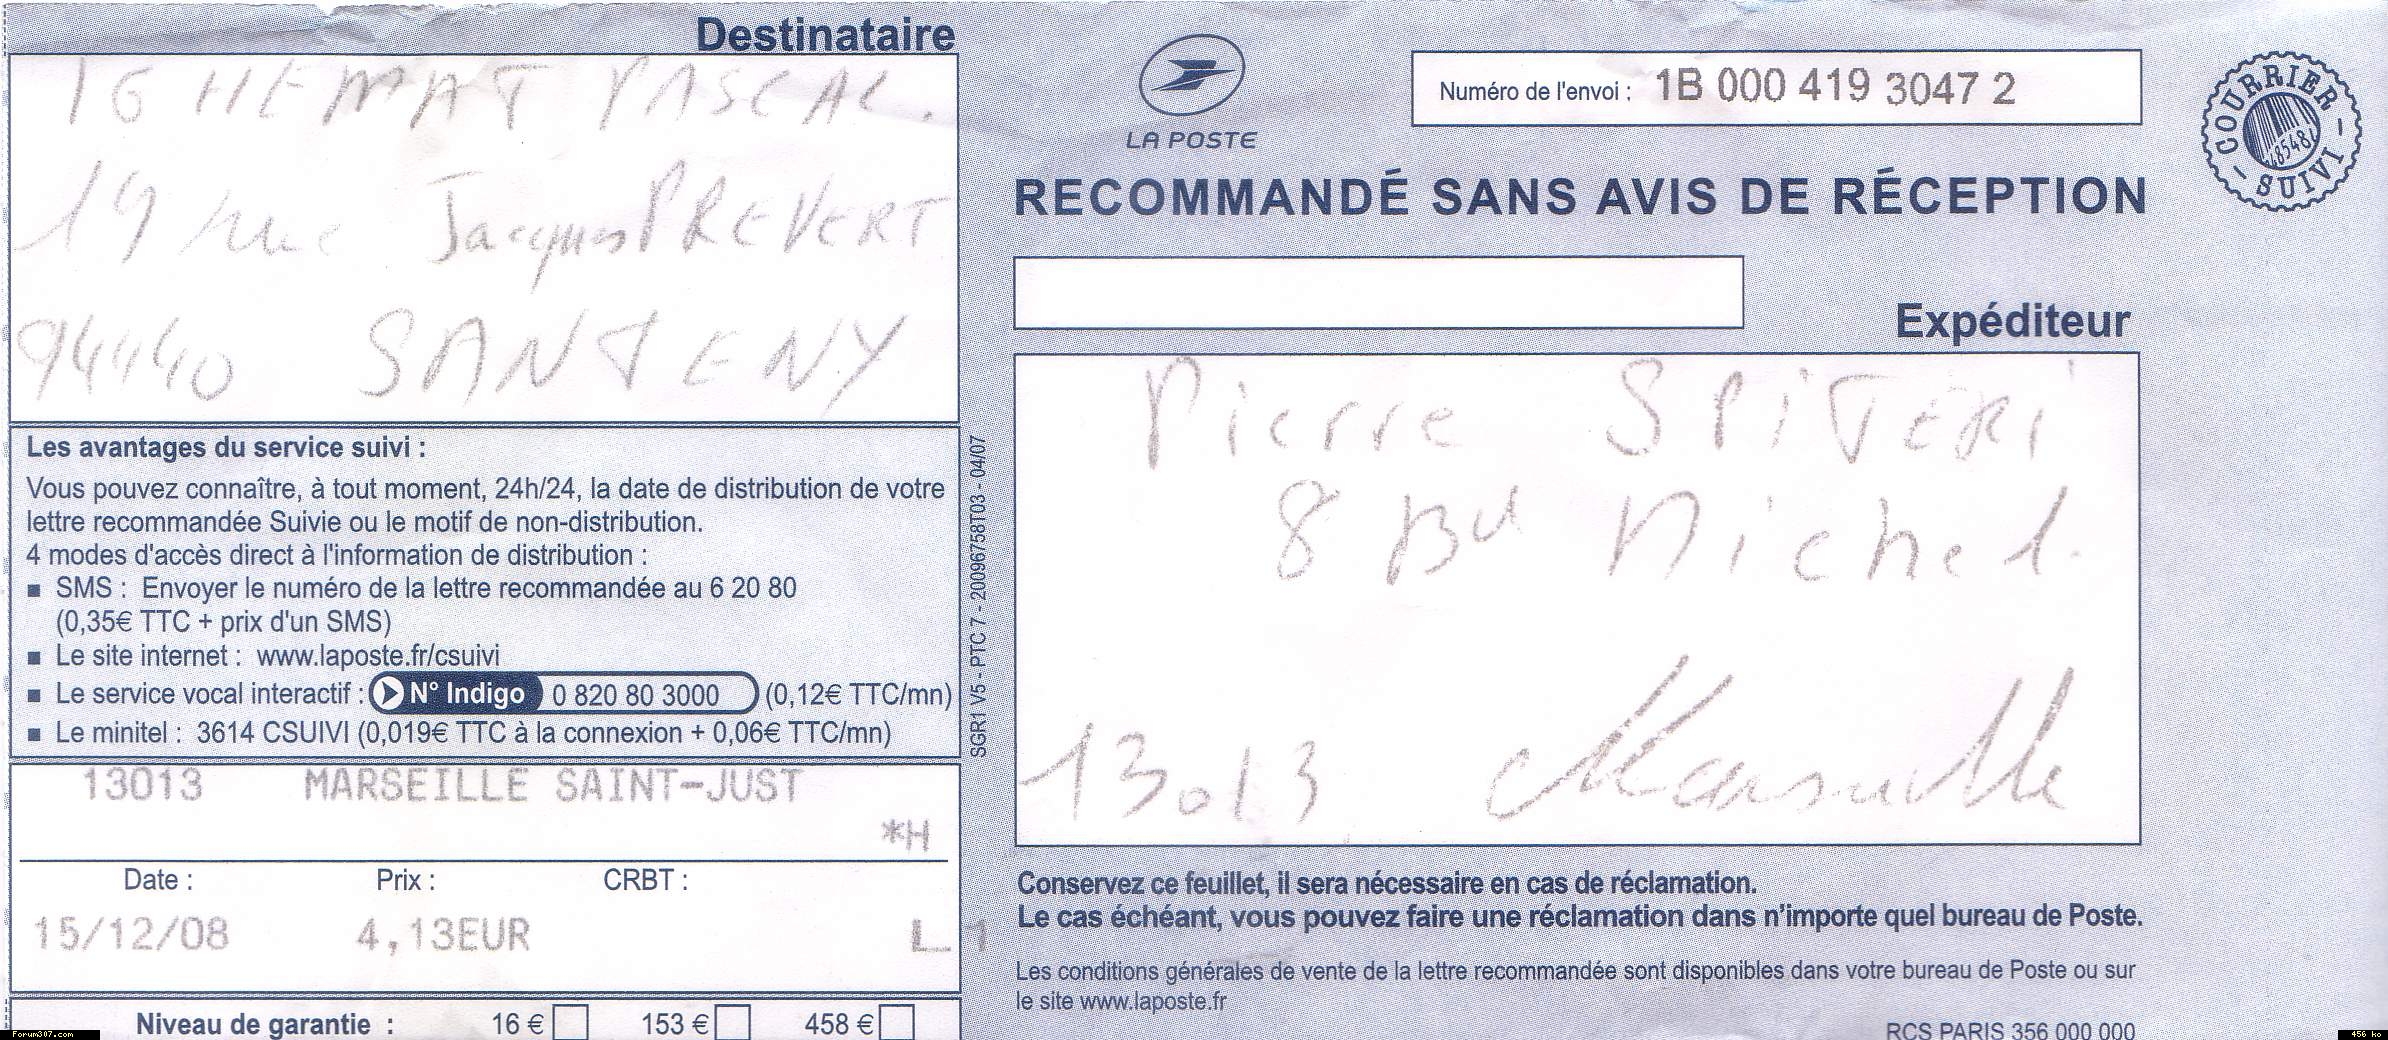 Destinataire
IGHEMAT PASCAL.
19 rue Jacques PREVERT
94440 SANTENY
Les avantages du service suivi :
Vous pouvez connaître, à tout moment, 24h/24, la date de distribution de votre
lettre recommandée Suivie ou le motif de non-distribution.
4 modes d'accès direct à l'information de distribution :
■ SMS : Envoyer le numéro de la lettre recommandée au 6 20 80
(0,35€ TTC + prix d'un SMS)
■ Le site internet : www.laposte.fr/csuivi
■ Le service vocal interactif : N° Indigo 0 820 80 3000 (0,12€ TTC/mn)
■ Le minitel : 3614 CSUIVI (0,019€ TTC à la connexion + 0,06€ TTC/mn)
13013 MARSEILLE SAINT-JUST
*H
Date : Prix : CRBT :
15/12/08 4,13EUR L 1
Niveau de garantie : 16 € 153 € 458 €
SGR1 V5 - PTC 7 - 20096758T03 - 04/07
LA POSTE
Numéro de l'envoi : 1B 000 419 3047 2
COURRIER
SUIVI
RECOMMANDÉ SANS AVIS DE RÉCEPTION
Expéditeur
Pierre SPiTERi
8 Bd Michel.
13013 Marseille
Conservez ce feuillet, il sera nécessaire en cas de réclamation.
Le cas échéant, vous pouvez faire une réclamation dans n'importe quel bureau de Poste.
Les conditions générales de vente de la lettre recommandée sont disponibles dans votre bureau de Poste ou sur
le site www.laposte.fr
RCS PARIS 356 000 000
Forum307.com
456 ko